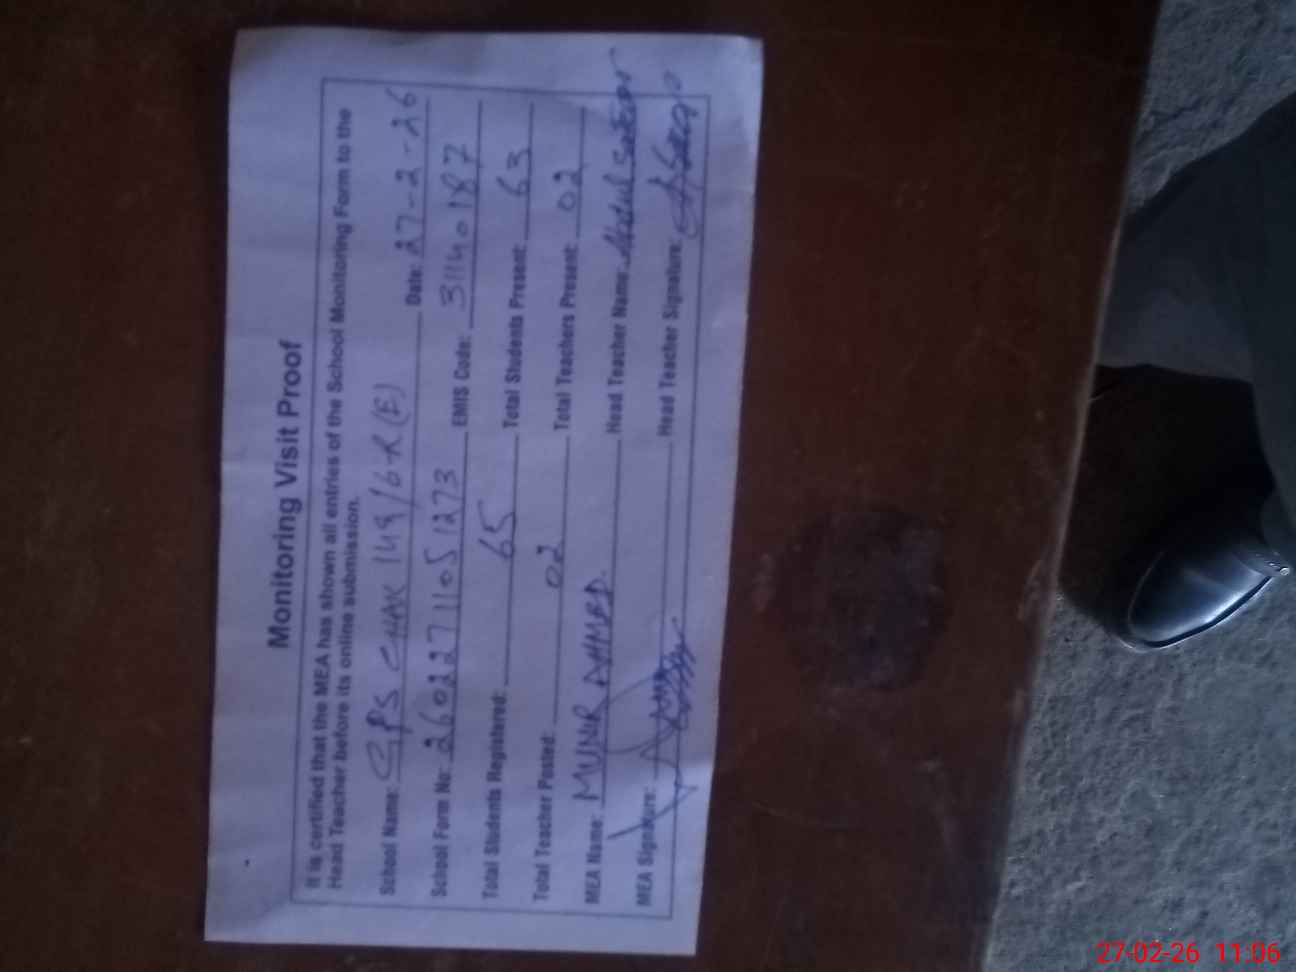 Monitoring Visit Proof
It is certified that the MEA has shown all entries of the School Monitoring Form to the
Head Teacher before its online submission.
School Name: GPS CHAK 149/6-R(E) Date: 27-2-26
School Form No: 26022711051273 EMIS Code: 31140187
Total Students Registered: 65 Total Students Present: 63
Total Teacher Posted: 02 Total Teachers Present: 02
MEA Name: MUNIR AHMED. Head Teacher Name: Abdul Sattar
MEA Signature: Head Teacher Signature:
27-02-26 11:06